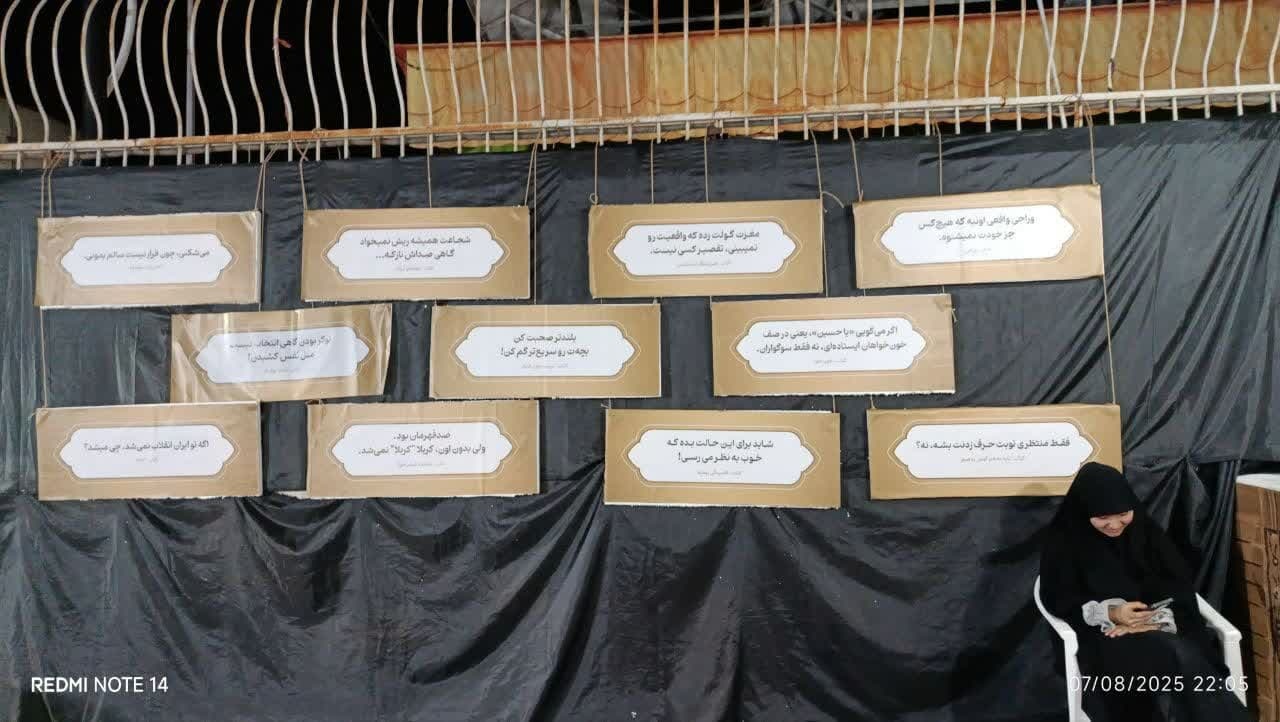 وراجی واقعی اونیه که هیچ‌کس
جز خودت نمیشنوه.
مغزت گولت زده که واقعیت رو
نمیبینی، تقصیر کسی نیست.
شجاعت همیشه ریش نمیخواد
گاهی صداش نازکه...
می‌شکنی، چون قرار نیست سالم بمونی.
اگر می‌گویی «یا حسین»، یعنی در صف
خون‌خواهان ایستاده‌ای، نه فقط سوگواران.
بلندتر صحبت کن
بچه‌ت رو سریع‌تر گم کن!
نوکر بودن گاهی انتخاب نیست
مثل نفس کشیدن!
فقط منتظری نوبت حرف زدنت بشه، نه؟
شاید برای این حالت بده که
خوب به نظر می رسی!
ضدقهرمان بود.
ولی بدون اون، کربلا "کربلا" نمی‌شد.
اگه تو ایران انقلاب نمی‌شد، چی میشد؟
REDMI NOTE 14
07/08/2025 22:05